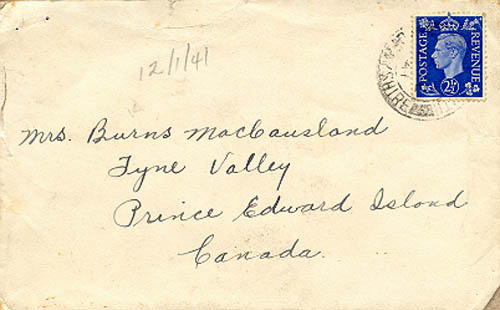 12/1/41
POSTAGE REVENUE
2½
Mrs. Burns MacCausland
Tyne Valley
Prince Edward Island
Canada.